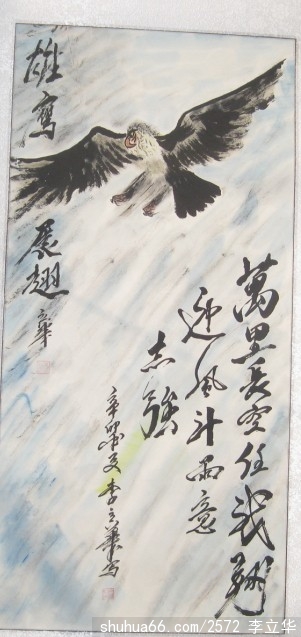 雄鹰展翅
萬里長空任我翔
迎風斗雨意
志強
李立華写
shuhua66.com/2572 李立华